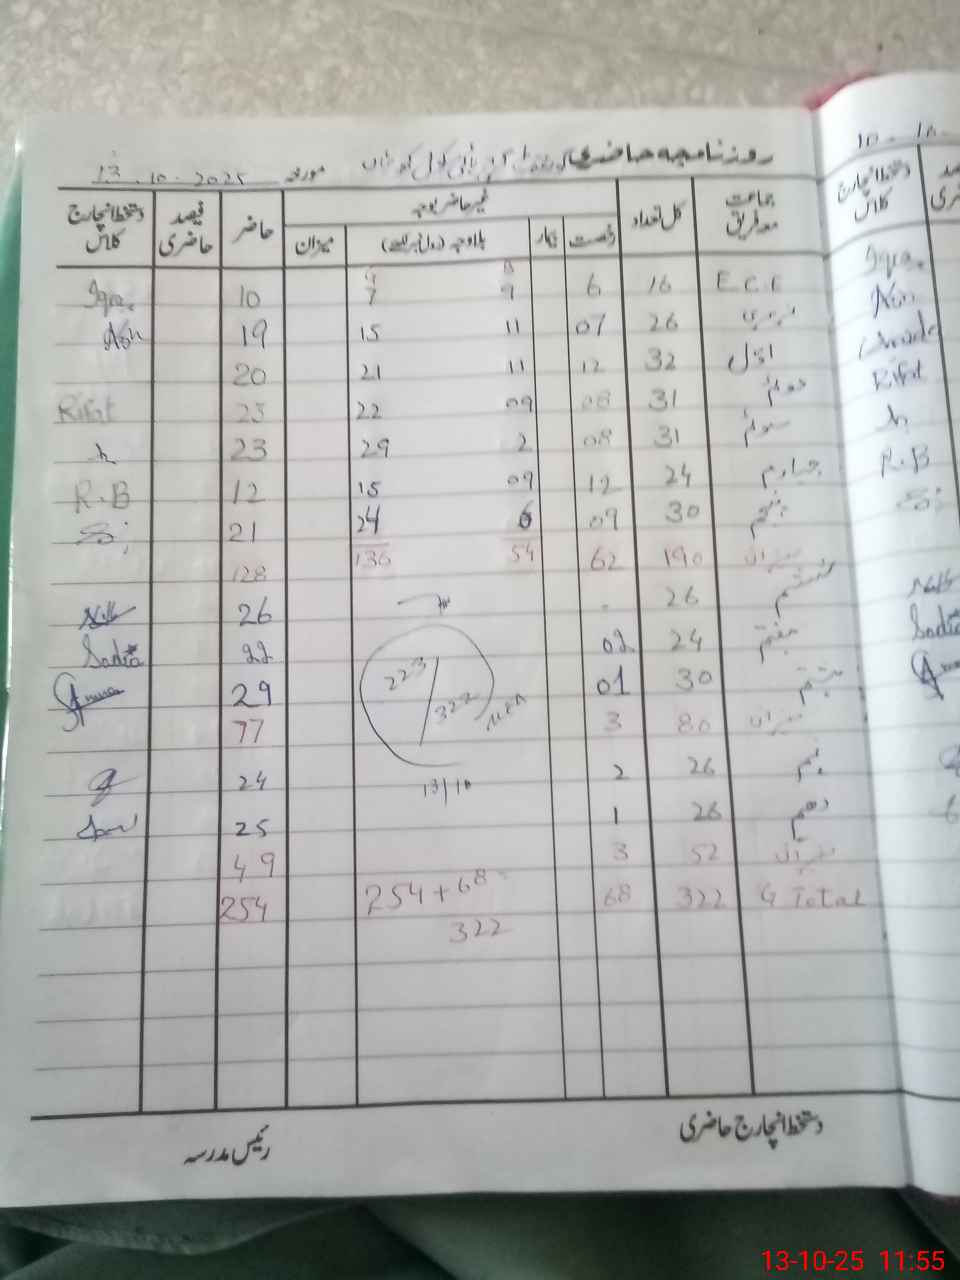 روزنامچہ حاضری
مورخہ 13-10-2025
جماعت معہ فریق کل تعداد غیر حاضر بوجہ حاضر فیصد حاضری دستخط انچارج کلاس
رخصت بیمار بلاوجہ میزان
G B
E.C.E 16 6 9 7 10 Iqra.
26 07 11 15 19 Ash
اوّل 32 12 11 21 20
دوئم 31 08 09 22 23 Rifat
سوئم 31 08 2 29 23
چہارم 24 12 09 15 12 R.B
پنجم 30 09 6 24 21
میزان 190 62 54 136 128
ششم 26 . 26
ہفتم 24 02 22 Sadia
ہشتم 30 01 29
میزان 80 3 77
223/322
13/10
نہم 26 2 24
دھم 26 1 25
میزان 52 3 49
G Total 322 68 254+68 254
322
دستخط انچارج حاضری
رئیس مدرسہ
10-10-
دستخط انچارج کلاس
Iqra.
Ash
Rifat
R.B
Sadia
13-10-25 11:55